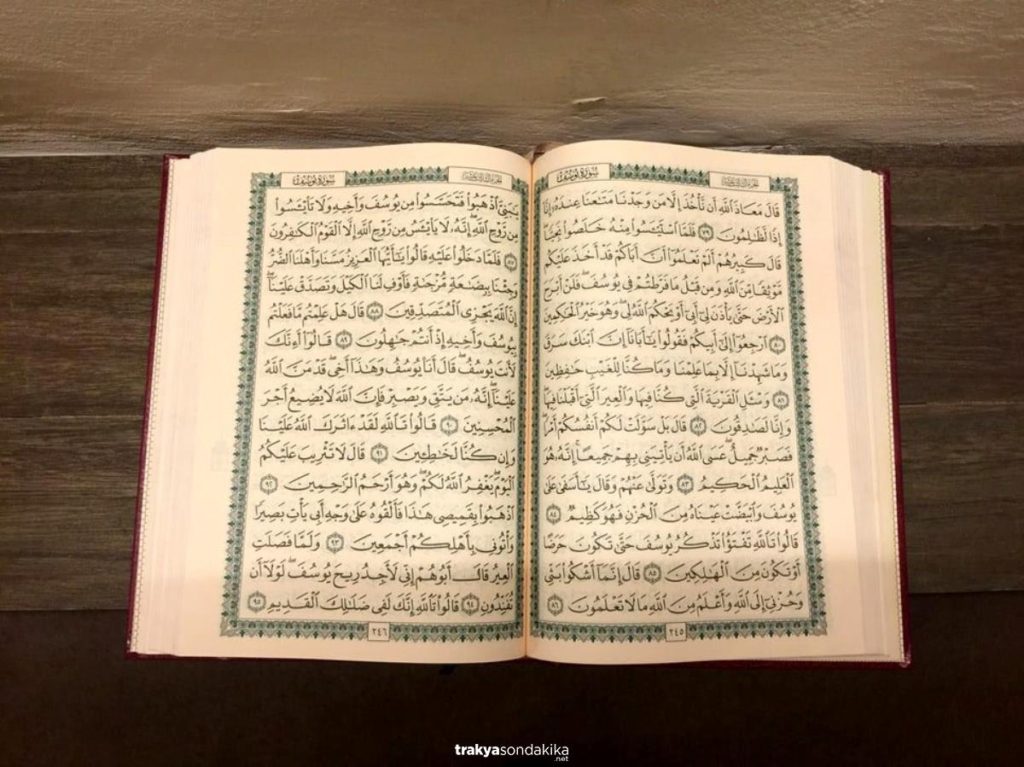 الجزء الثالث عشر
سورة يوسف
قَالَ مَعَاذَ ٱللَّهِ أَن نَّأْخُذَ إِلَّا مَن وَجَدْنَا مَتَٰعَنَا عِندَهُۥٓ إِنَّآ
إِذًا لَّظَٰلِمُونَ ٧٩ فَلَمَّا ٱسْتَيْـَٔسُوا۟ مِنْهُ خَلَصُوا۟ نَجِيًّا
قَالَ كَبِيرُهُمْ أَلَمْ تَعْلَمُوٓا۟ أَنَّ أَبَاكُمْ قَدْ أَخَذَ عَلَيْكُم
مَّوْثِقًا مِّنَ ٱللَّهِ وَمِن قَبْلُ مَا فَرَّطتُمْ فِى يُوسُفَ فَلَنْ أَبْرَحَ
ٱلْأَرْضَ حَتَّىٰ يَأْذَنَ لِىٓ أَبِىٓ أَوْ يَحْكُمَ ٱللَّهُ لِى وَهُوَ خَيْرُ ٱلْحَٰكِمِينَ
٨٠ ٱرْجِعُوٓا۟ إِلَىٰٓ أَبِيكُمْ فَقُولُوا۟ يَٰٓأَبَانَآ إِنَّ ٱبْنَكَ سَرَقَ
وَمَا شَهِدْنَآ إِلَّا بِمَا عَلِمْنَا وَمَا كُنَّا لِلْغَيْبِ حَٰفِظِينَ
٨١ وَسْـَٔلِ ٱلْقَرْيَةَ ٱلَّتِى كُنَّا فِيهَا وَٱلْعِيرَ ٱلَّتِىٓ أَقْبَلْنَا فِيهَا
وَإِنَّا لَصَٰدِقُونَ ٨٢ قَالَ بَلْ سَوَّلَتْ لَكُمْ أَنفُسُكُمْ أَمْرًا
فَصَبْرٌ جَمِيلٌ عَسَى ٱللَّهُ أَن يَأْتِيَنِى بِهِمْ جَمِيعًا إِنَّهُۥ هُوَ
ٱلْعَلِيمُ ٱلْحَكِيمُ ٨٣ وَتَوَلَّىٰ عَنْهُمْ وَقَالَ يَٰٓأَسَفَىٰ عَلَىٰ
يُوسُفَ وَٱبْيَضَّتْ عَيْنَاهُ مِنَ ٱلْحُزْنِ فَهُوَ كَظِيمٌ ٨٤
قَالُوا۟ تَٱللَّهِ تَفْتَؤُا۟ تَذْكُرُ يُوسُفَ حَتَّىٰ تَكُونَ حَرَضًا
أَوْ تَكُونَ مِنَ ٱلْهَٰلِكِينَ ٨٥ قَالَ إِنَّمَآ أَشْكُوا۟ بَثِّى
وَحُزْنِىٓ إِلَى ٱللَّهِ وَأَعْلَمُ مِنَ ٱللَّهِ مَا لَا تَعْلَمُونَ ٨٦
٢٤٥
الجزء الثالث عشر
سورة يوسف
يَٰبَنِىَّ ٱذْهَبُوا۟ فَتَحَسَّسُوا۟ مِن يُوسُفَ وَأَخِيهِ وَلَا تَا۟يْـَٔسُوا۟
مِن رَّوْحِ ٱللَّهِ إِنَّهُۥ لَا يَا۟يْـَٔسُ مِن رَّوْحِ ٱللَّهِ إِلَّا ٱلْقَوْمُ ٱلْكَٰفِرُونَ
٨٧ فَلَمَّا دَخَلُوا۟ عَلَيْهِ قَالُوا۟ يَٰٓأَيُّهَا ٱلْعَزِيزُ مَسَّنَا وَأَهْلَنَا ٱلضُّرُّ
وَجِئْنَا بِبِضَٰعَةٍ مُّزْجَىٰةٍ فَأَوْفِ لَنَا ٱلْكَيْلَ وَتَصَدَّقْ عَلَيْنَآ
إِنَّ ٱللَّهَ يَجْزِى ٱلْمُتَصَدِّقِينَ ٨٨ قَالَ هَلْ عَلِمْتُم مَّا فَعَلْتُم
بِيُوسُفَ وَأَخِيهِ إِذْ أَنتُمْ جَٰهِلُونَ ٨٩ قَالُوٓا۟ أَءِنَّكَ
لَأَنتَ يُوسُفُ قَالَ أَنَا۠ يُوسُفُ وَهَٰذَآ أَخِى قَدْ مَنَّ ٱللَّهُ
عَلَيْنَآ إِنَّهُۥ مَن يَتَّقِ وَيَصْبِرْ فَإِنَّ ٱللَّهَ لَا يُضِيعُ أَجْرَ
ٱلْمُحْسِنِينَ ٩٠ قَالُوا۟ تَٱللَّهِ لَقَدْ ءَاثَرَكَ ٱللَّهُ عَلَيْنَا
وَإِن كُنَّا لَخَٰطِـِٔينَ ٩١ قَالَ لَا تَثْرِيبَ عَلَيْكُمُ
ٱلْيَوْمَ يَغْفِرُ ٱللَّهُ لَكُمْ وَهُوَ أَرْحَمُ ٱلرَّٰحِمِينَ ٩٢
ٱذْهَبُوا۟ بِقَمِيصِى هَٰذَا فَأَلْقُوهُ عَلَىٰ وَجْهِ أَبِى يَأْتِ بَصِيرًا
وَأْتُونِى بِأَهْلِكُمْ أَجْمَعِينَ ٩٣ وَلَمَّا فَصَلَتِ
ٱلْعِيرُ قَالَ أَبُوهُمْ إِنِّى لَأَجِدُ رِيحَ يُوسُفَ لَوْلَآ أَن
تُفَنِّدُونِ ٩٤ قَالُوا۟ تَٱللَّهِ إِنَّكَ لَفِى ضَلَٰلِكَ ٱلْقَدِيمِ ٩٥
٢٤٦
trakyasondakika
.net